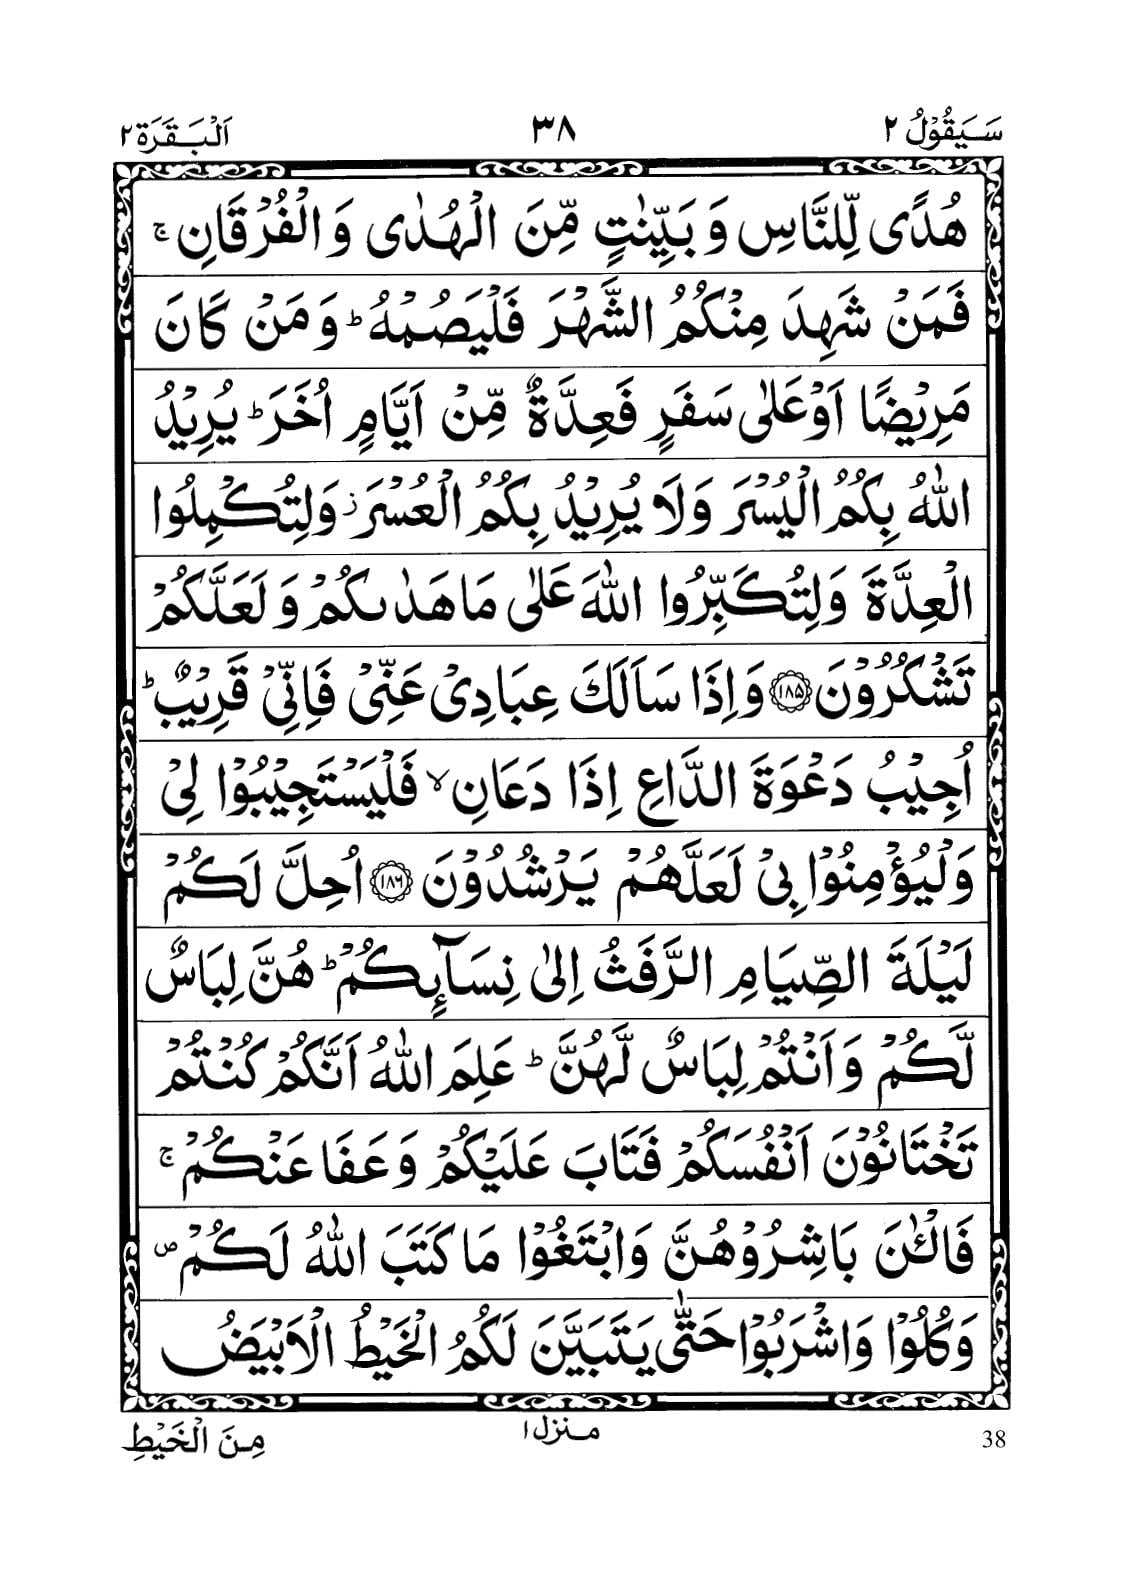 سَيَقُوْلُ ٢
٣٨
اَلْبَقَرَة ٢
هُدًى لِّلنَّاسِ وَ بَيِّنٰتٍ مِّنَ الْهُدٰى وَ الْفُرْقَانِ ۚ
فَمَنْ شَهِدَ مِنْكُمُ الشَّهْرَ فَلْيَصُمْهُ ؕ وَ مَنْ كَانَ
مَرِيْضًا اَوْ عَلٰى سَفَرٍ فَعِدَّةٌ مِّنْ اَيَّامٍ اُخَرَ ؕ يُرِيْدُ
اللّٰهُ بِكُمُ الْيُسْرَ وَلَا يُرِيْدُ بِكُمُ الْعُسْرَ ؗ وَلِتُكْمِلُوا
الْعِدَّةَ وَلِتُكَبِّرُوا اللّٰهَ عَلٰى مَا هَدٰىكُمْ وَ لَعَلَّكُمْ
تَشْكُرُوْنَ ۝١٨٥ وَاِذَا سَاَلَكَ عِبَادِيْ عَنِّيْ فَاِنِّيْ قَرِيْبٌ ؕ
اُجِيْبُ دَعْوَةَ الدَّاعِ اِذَا دَعَانِ ۙ فَلْيَسْتَجِيْبُوْا لِيْ
وَلْيُؤْمِنُوْا بِيْ لَعَلَّهُمْ يَرْشُدُوْنَ ۝١٨٦ اُحِلَّ لَكُمْ
لَيْلَةَ الصِّيَامِ الرَّفَثُ اِلٰى نِسَآئِكُمْ ؕ هُنَّ لِبَاسٌ
لَّكُمْ وَ اَنْتُمْ لِبَاسٌ لَّهُنَّ ؕ عَلِمَ اللّٰهُ اَنَّكُمْ كُنْتُمْ
تَخْتَانُوْنَ اَنْفُسَكُمْ فَتَابَ عَلَيْكُمْ وَ عَفَا عَنْكُمْ ۚ
فَالْـٰٔنَ بَاشِرُوْهُنَّ وَ ابْتَغُوْا مَا كَتَبَ اللّٰهُ لَكُمْ ۪
وَكُلُوْا وَاشْرَبُوْا حَتّٰى يَتَبَيَّنَ لَكُمُ الْخَيْطُ الْاَبْيَضُ
مِنَ الْخَيْطِ
منزل ١
38